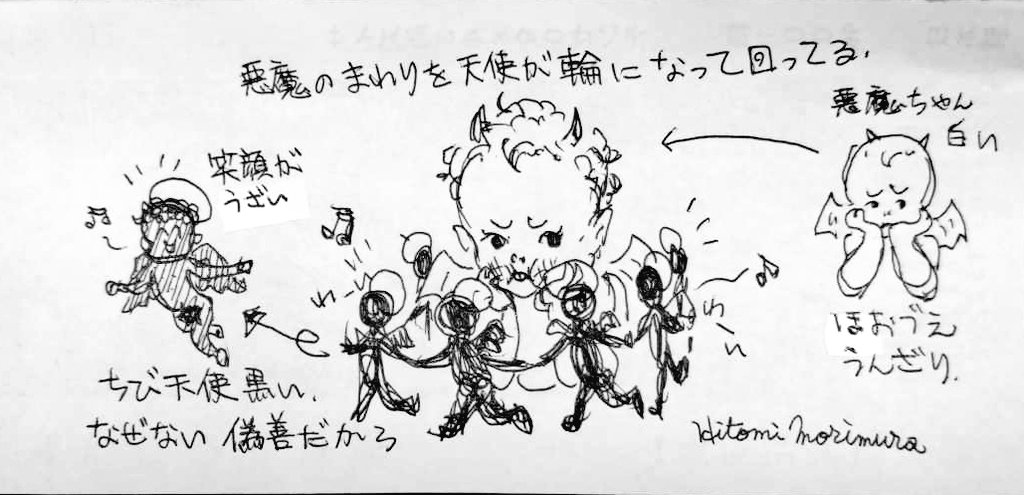 悪魔のまわりを天使が輪になって回ってる.
悪魔ちゃん
白い
笑顔が
うざい
わーい
わーい
ほおづえ
うんざり.
ちび天使黒い.
なぜない 偽善だから
Hitomi Morimura